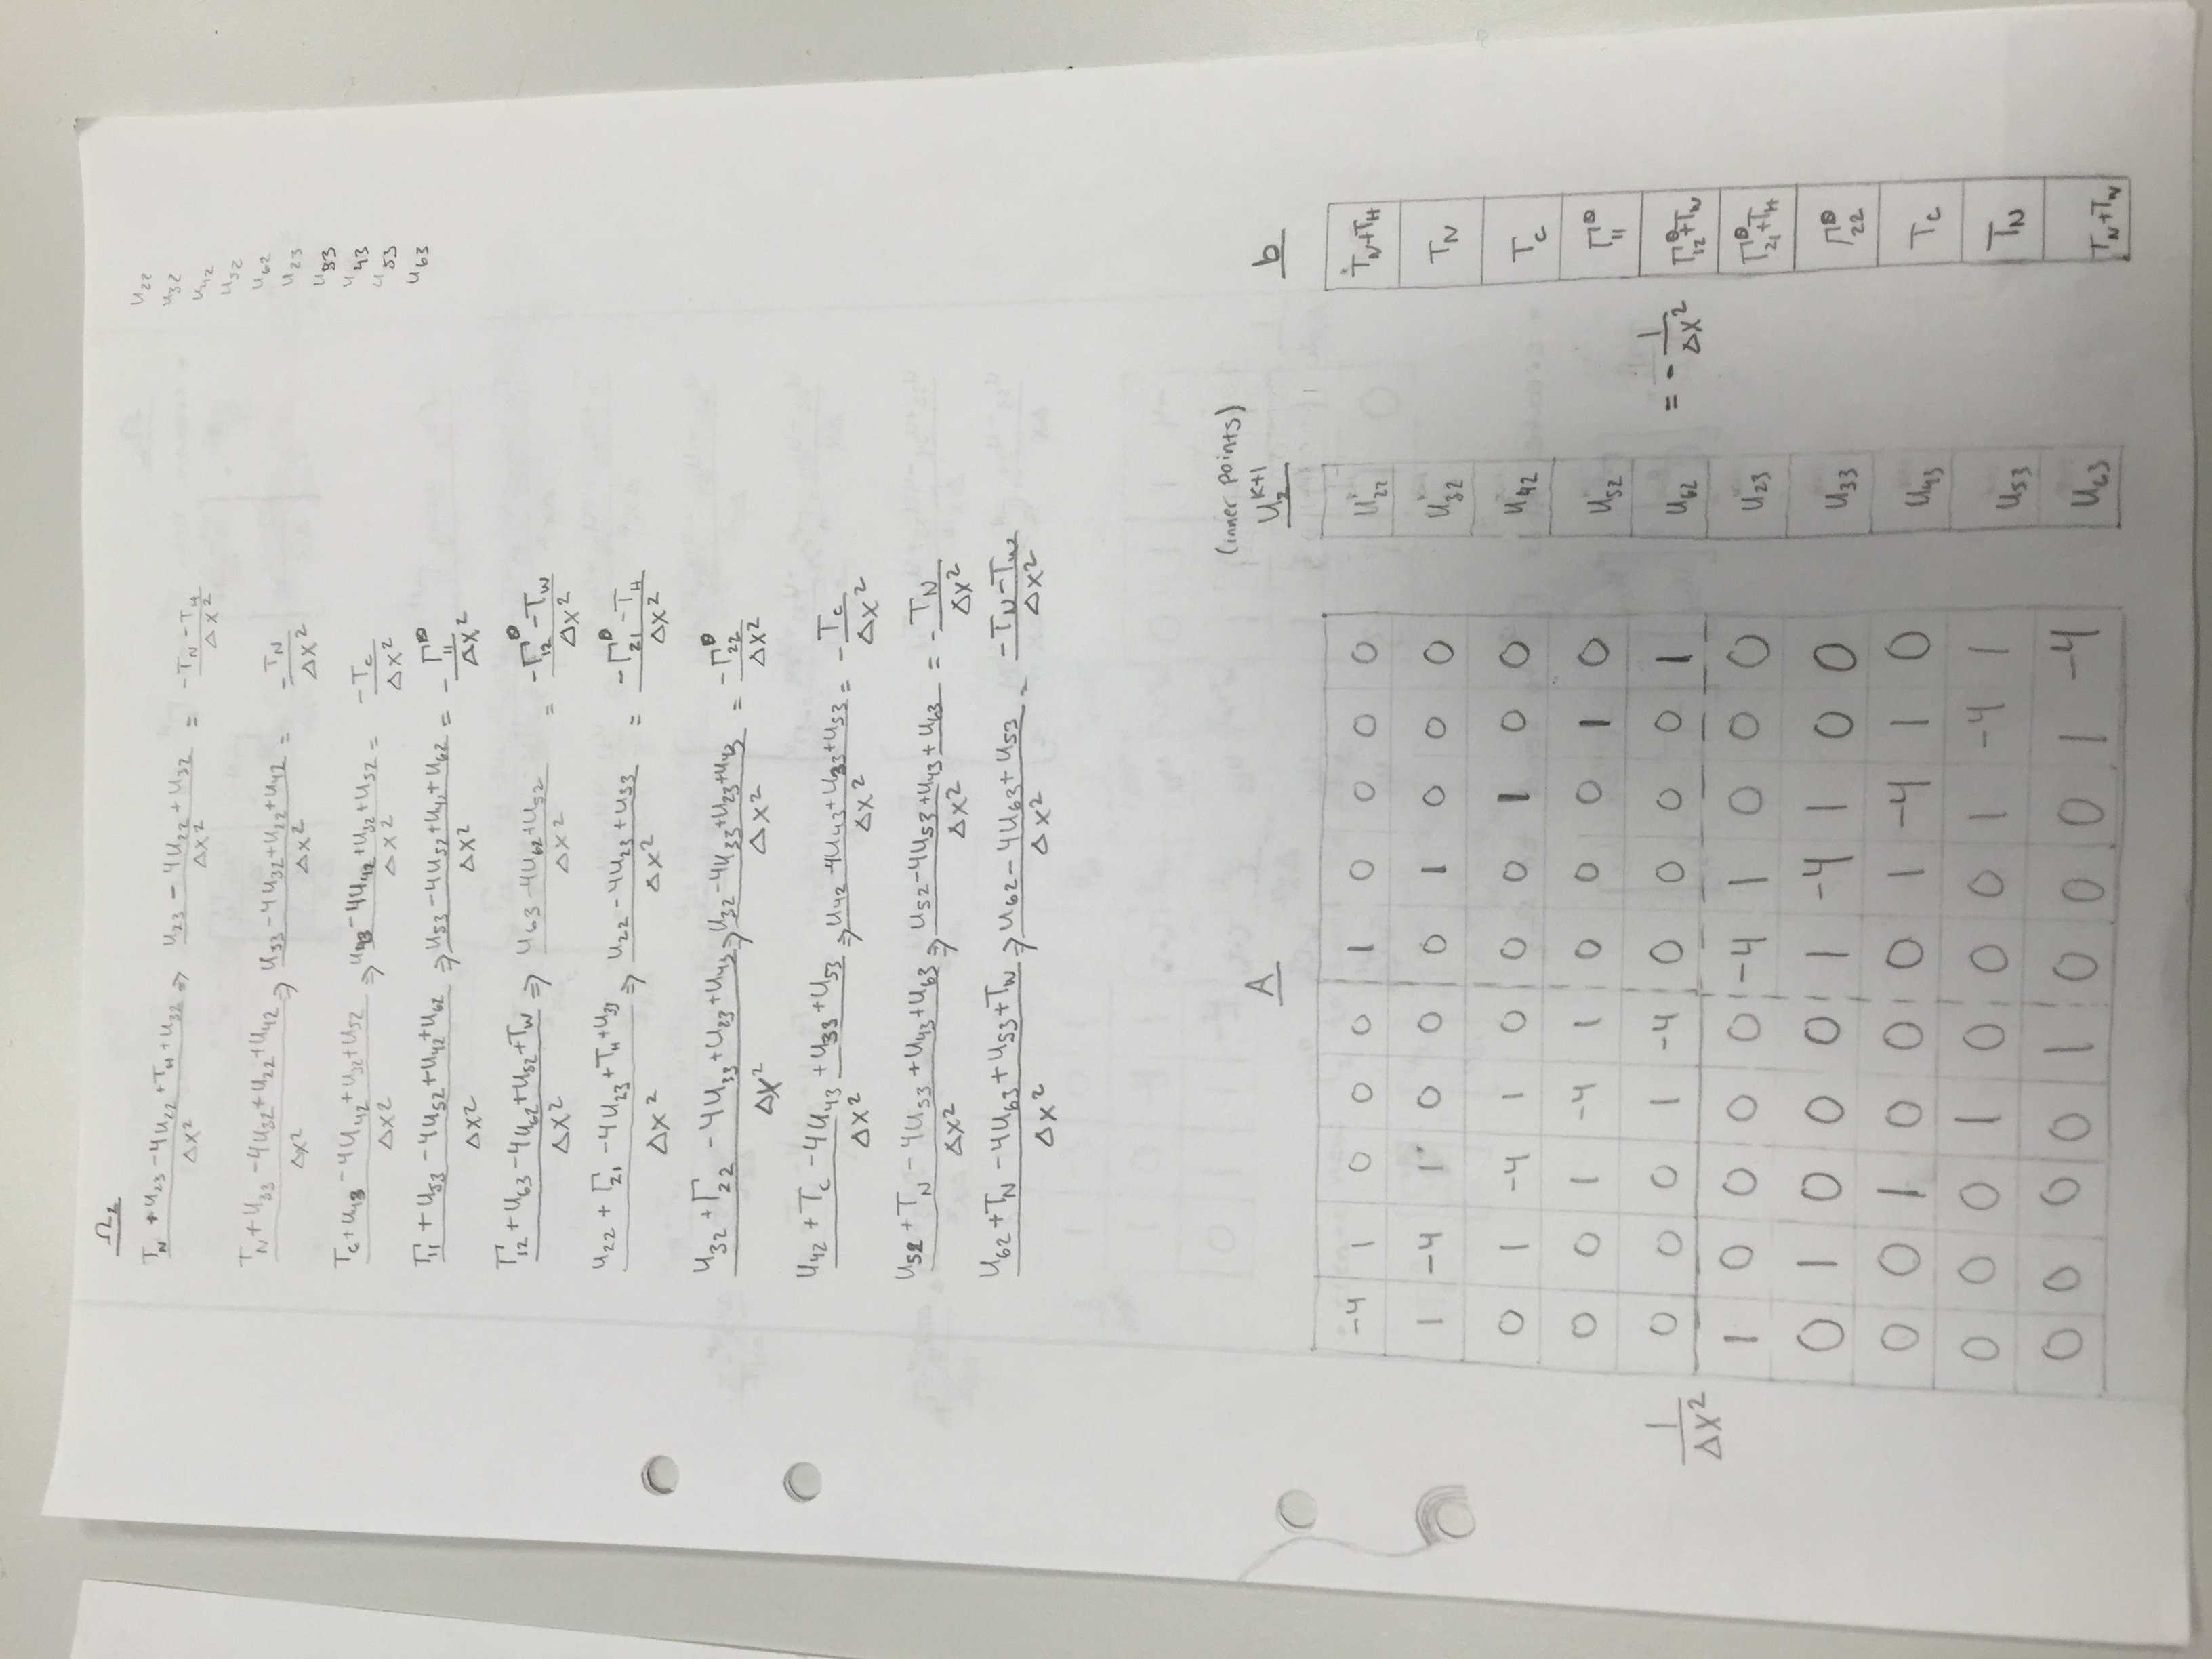 Ω₂
(T_N + u₂₃ - 4u₂₂ + T_H + u₃₂)/Δx² ⇒ (u₂₃ - 4u₂₂ + u₃₂)/Δx² = (-T_N - T_H)/Δx²
(T_N + u₃₃ - 4u₃₂ + u₂₂ + u₄₂)/Δx² ⇒ (u₃₃ - 4u₃₂ + u₂₂ + u₄₂)/Δx² = -T_N/Δx²
(T_c + u₄₃ - 4u₄₂ + u₃₂ + u₅₂)/Δx² ⇒ (u₄₃ - 4u₄₂ + u₃₂ + u₅₂)/Δx² = -T_c/Δx²
(Γ₁₁ + u₅₃ - 4u₅₂ + u₄₂ + u₆₂)/Δx² ⇒ (u₅₃ - 4u₅₂ + u₄₂ + u₆₂)/Δx² = -Γ₁₁^D/Δx²
(Γ₁₂ + u₆₃ - 4u₆₂ + u₅₂ + T_W)/Δx² ⇒ (u₆₃ - 4u₆₂ + u₅₂)/Δx² = (-Γ₁₂^D - T_W)/Δx²
(u₂₂ + Γ₂₁ - 4u₂₃ + T_H + u₃₃)/Δx² ⇒ (u₂₂ - 4u₂₃ + u₃₃)/Δx² = (-Γ₂₁^D - T_H)/Δx²
(u₃₂ + Γ₂₂ - 4u₃₃ + u₂₃ + u₄₃)/Δx² ⇒ (u₃₂ - 4u₃₃ + u₂₃ + u₄₃)/Δx² = -Γ₂₂^D/Δx²
(u₄₂ + T_c - 4u₄₃ + u₃₃ + u₅₃)/Δx² ⇒ (u₄₂ - 4u₄₃ + u₃₃ + u₅₃)/Δx² = -T_c/Δx²
(u₅₂ + T_N - 4u₅₃ + u₄₃ + u₆₃)/Δx² ⇒ (u₅₂ - 4u₅₃ + u₄₃ + u₆₃)/Δx² = -T_N/Δx²
(u₆₂ + T_N - 4u₆₃ + u₅₃ + T_W)/Δx² ⇒ (u₆₂ - 4u₆₃ + u₅₃)/Δx² = (-T_N - T_W)/Δx²
u₂₂
u₃₂
u₄₂
u₅₂
u₆₂
u₂₃
u₃₃
u₄₃
u₅₃
u₆₃
(inner points)
A U₂^{k+1} b
-4 1 0 0 0 1 0 0 0 0 u₂₂ T_N+T_H
1 -4 1 0 0 0 1 0 0 0 u₃₂ T_N
0 1 -4 1 0 0 0 1 0 0 u₄₂ T_c
0 0 1 -4 1 0 0 0 1 0 u₅₂ Γ₁₁^D
1/Δx² 0 0 0 1 -4 0 0 0 0 1 u₆₂ = -1/Δx² Γ₁₂^D+T_W
1 0 0 0 0 -4 1 0 0 0 u₂₃ Γ₂₁^D+T_H
0 1 0 0 0 1 -4 1 0 0 u₃₃ Γ₂₂^D
0 0 1 0 0 0 1 -4 1 0 u₄₃ T_c
0 0 0 1 0 0 0 1 -4 1 u₅₃ T_N
0 0 0 0 1 0 0 0 1 -4 u₆₃ T_N+T_W